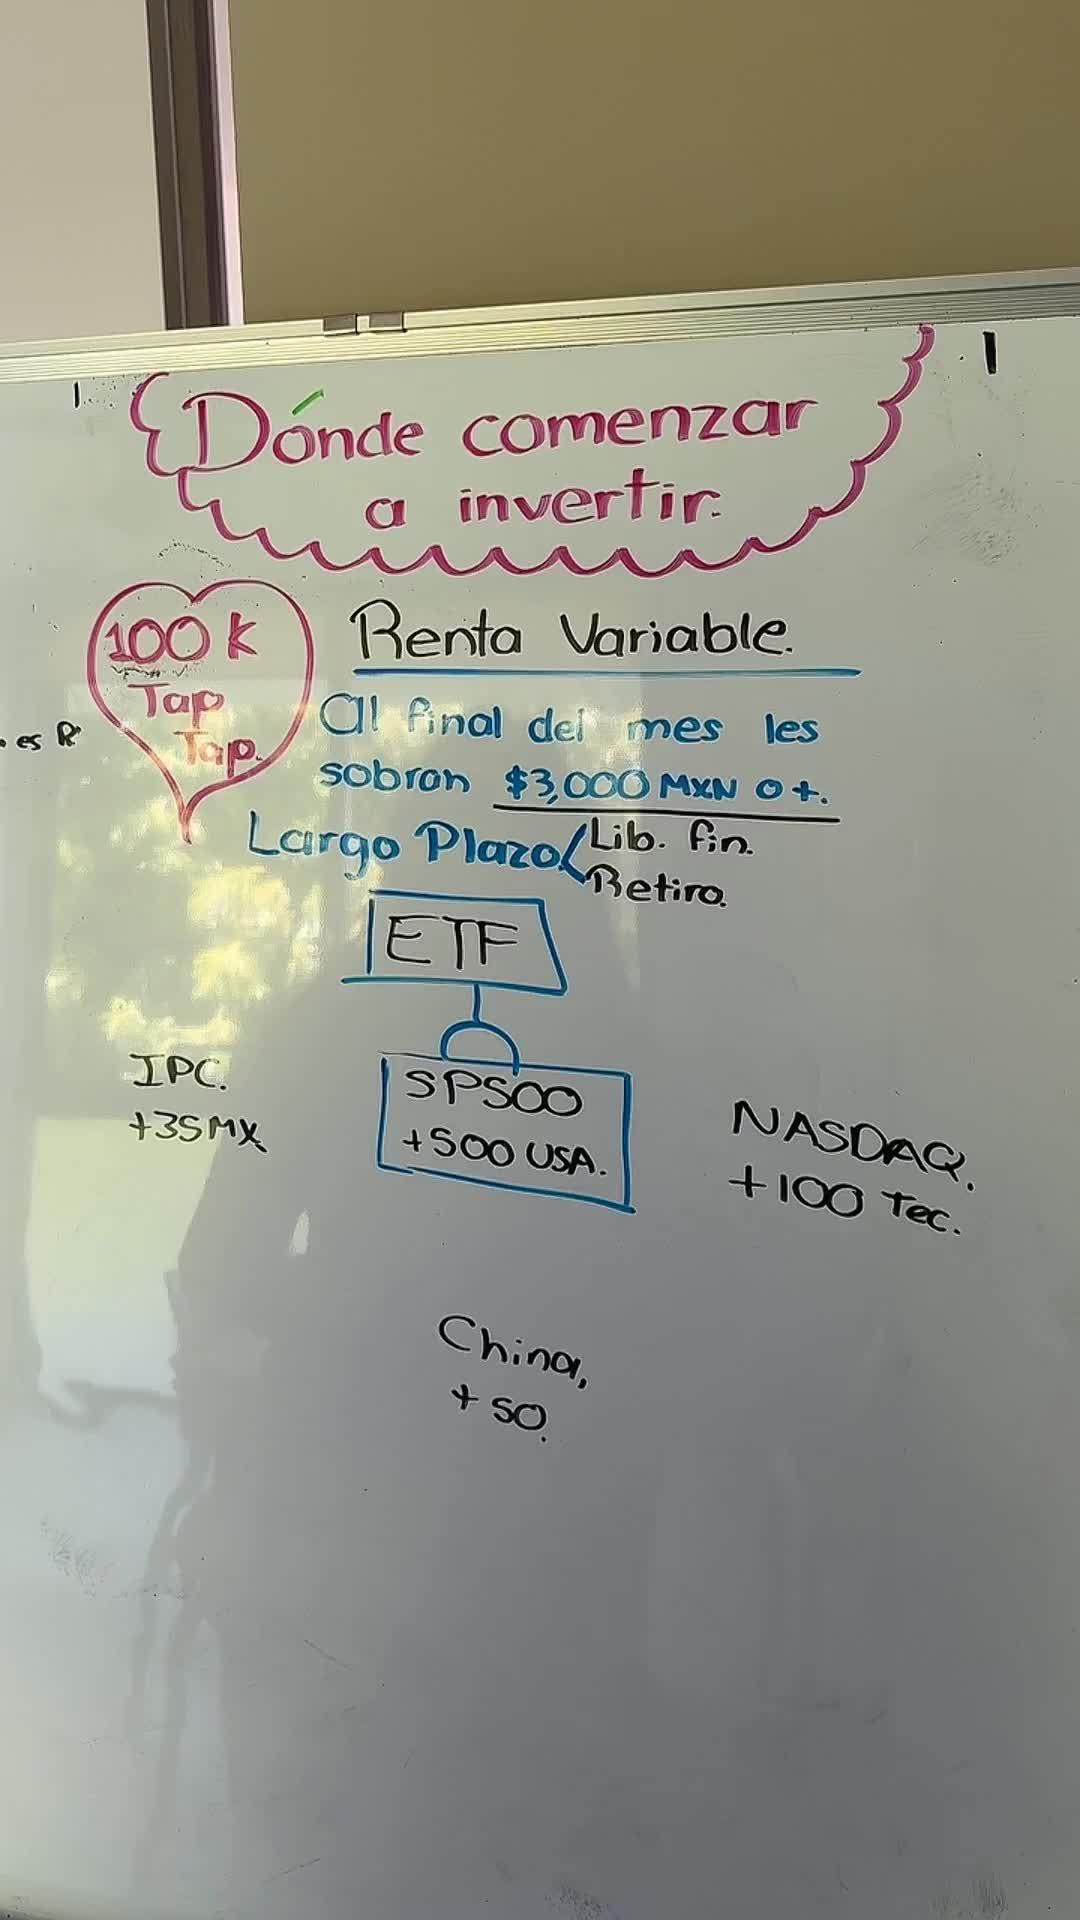 Dónde comenzar
a invertir.
100 k
Tap
Tap.
Renta Variable.
Al final del mes les
sobran $3,000 MXN o +.
Largo Plazo
Lib. fin.
Retiro.
ETF
IPC.
+35 MX
SP500
+500 USA.
NASDAQ.
+100 Tec.
China,
+ 50.
. es R